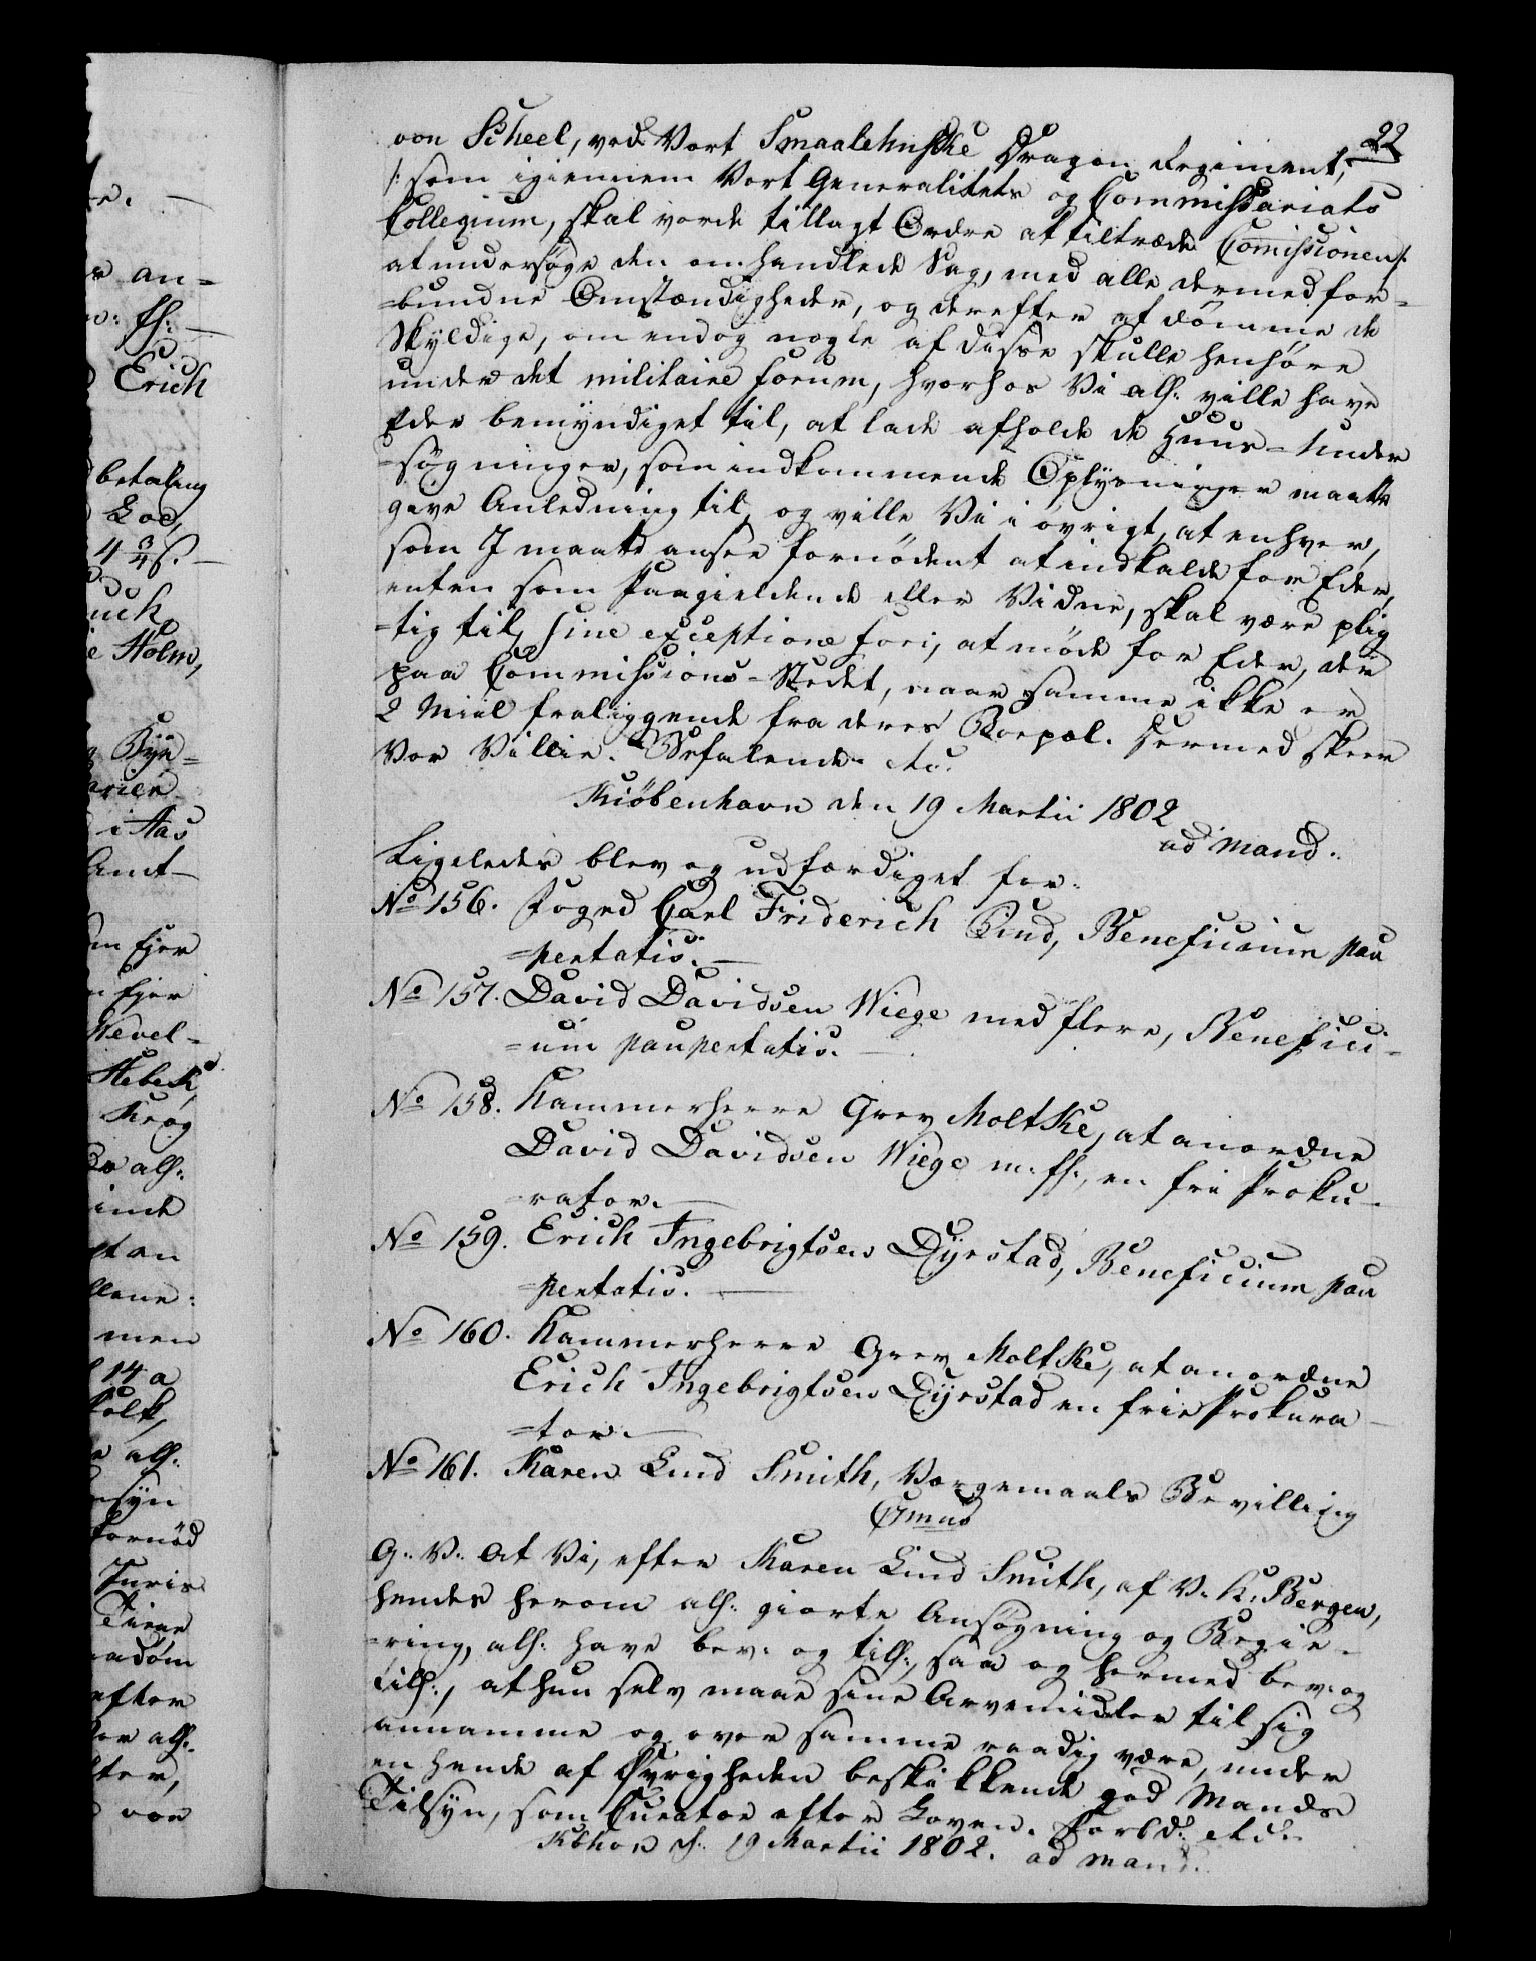 22
von Scheel, ved Vort Smaalehnske Dragon Regiment,
/: som igiennem Vort Generalitets og Commissariats
Collegium, skal vorde tillagt Ordre at tiltræde Comissionen :/
at undersøge den omhandlede Sag, med alle dermed for-
=bundne Omstændigheder, og derefter at dømme de
Skyldige, om endog nogle af disse skulle henhøre
under det militaire forum, hvorhos Vi alh: ville have
Eder bemyndiget til, at lade afholde de Huus-Under
=søgninger, som indkommende Oplysninger maatte
give Anledning til, og ville Vi i øvrigt, at enhver,
som I maatte ansee fornødent at indkalde for Eder,
enten som Paagieldende eller Vidne, skal være plig
=tig til, sine exceptione fori, at møde for Eder, der
paa Commissions-Stedet, naar samme ikke er
2 Miil fraliggende fra deres Boepæl. Dermed skeer
Vor Villie. Befalende etc.
Kiöbenhavn den 19 Martii 1802
ad mand.
Ligeledes blev og udfærdiget for:
No 156. Foged Carl Friderich Lind, Beneficium pau
=pertatis. —
No 157. David Davidsen Wiege med flere, Benefici-
=um paupertatis. —
No 158. Kammerherre Grev Moltke, at anordne
David Davidsen Wiege m: fl:, en fri Proku-
rator. —
No 159. Erich Ingebrigtsen Dyrstad, Beneficium pau
=pertatis. —
No 160. Kammerherre Grev Moltke, at anordne
Erich Ingebrigtsen Dyrstad en frie Prokura
=tor. —
No 161. Karen Lind Smith, Værgemaals Bevilling
G: V: At Vi, efter Karen Lind Smith, af V. K: Bergen,
hendes herom alh: giorte Ansøgning og Begie-
=ring, alh: have bev: og tilh:, saa og hermed bev: og
tilh:, at hun selv maae sine Arvemidler til sig
annamme og over samme raadig være, under
en hende af Øvrigheden beskikkende god Mands
Tilsyn, som Curator efter Loven. Forbd: etc:
Kbhvn d: 19 Martii 1802. ad mand.